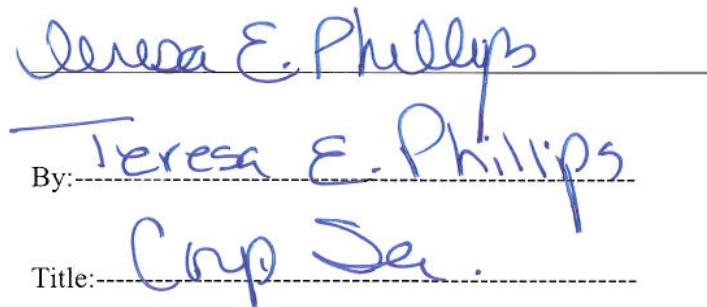 Teresa E. Phillips
By: Teresa E. Phillips
Title: Corp Sec.